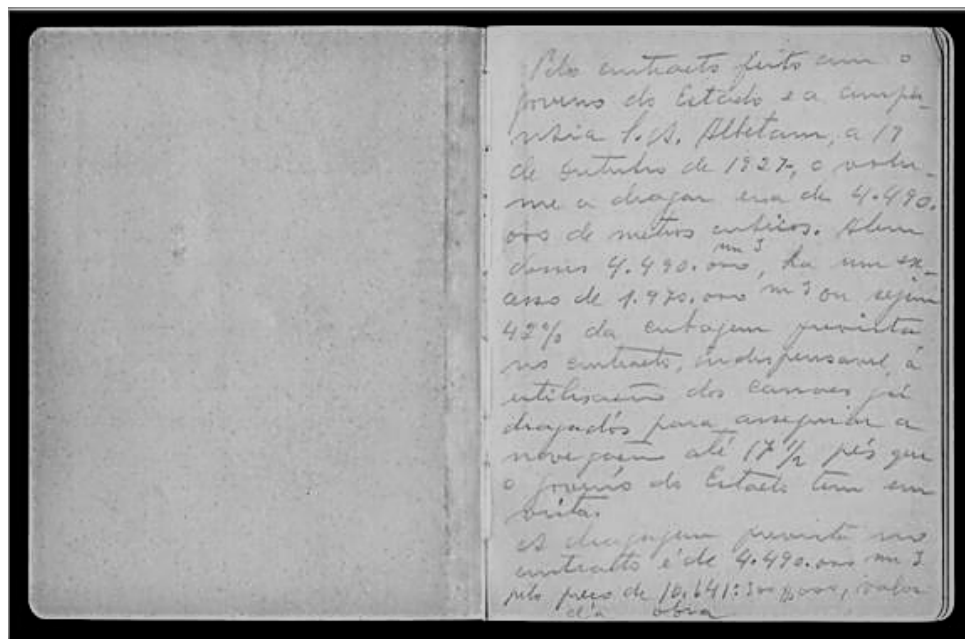 Pelo contracto feito com o
governo do Estado e a compa-
nhia S.A. , a 17
de Outubro de 1927, o volu-
me a dragar era de 4.490.
000 de metros cubicos. Alem
desses 4.490.000 m3, ha um ex-
cesso de 1.970.000 m3 ou sejam
42% da cubagem prevista
no contracto, indispensavel, á
utilisação dos canaes já
dragados para assegurar a
navegação até 17 1/2 pés que
o governo do Estado tem em
vista.
A dragagem prevista no
contracto é de 4.490.000 m3
pelo preço de 10.641:300$000, valor
da obra